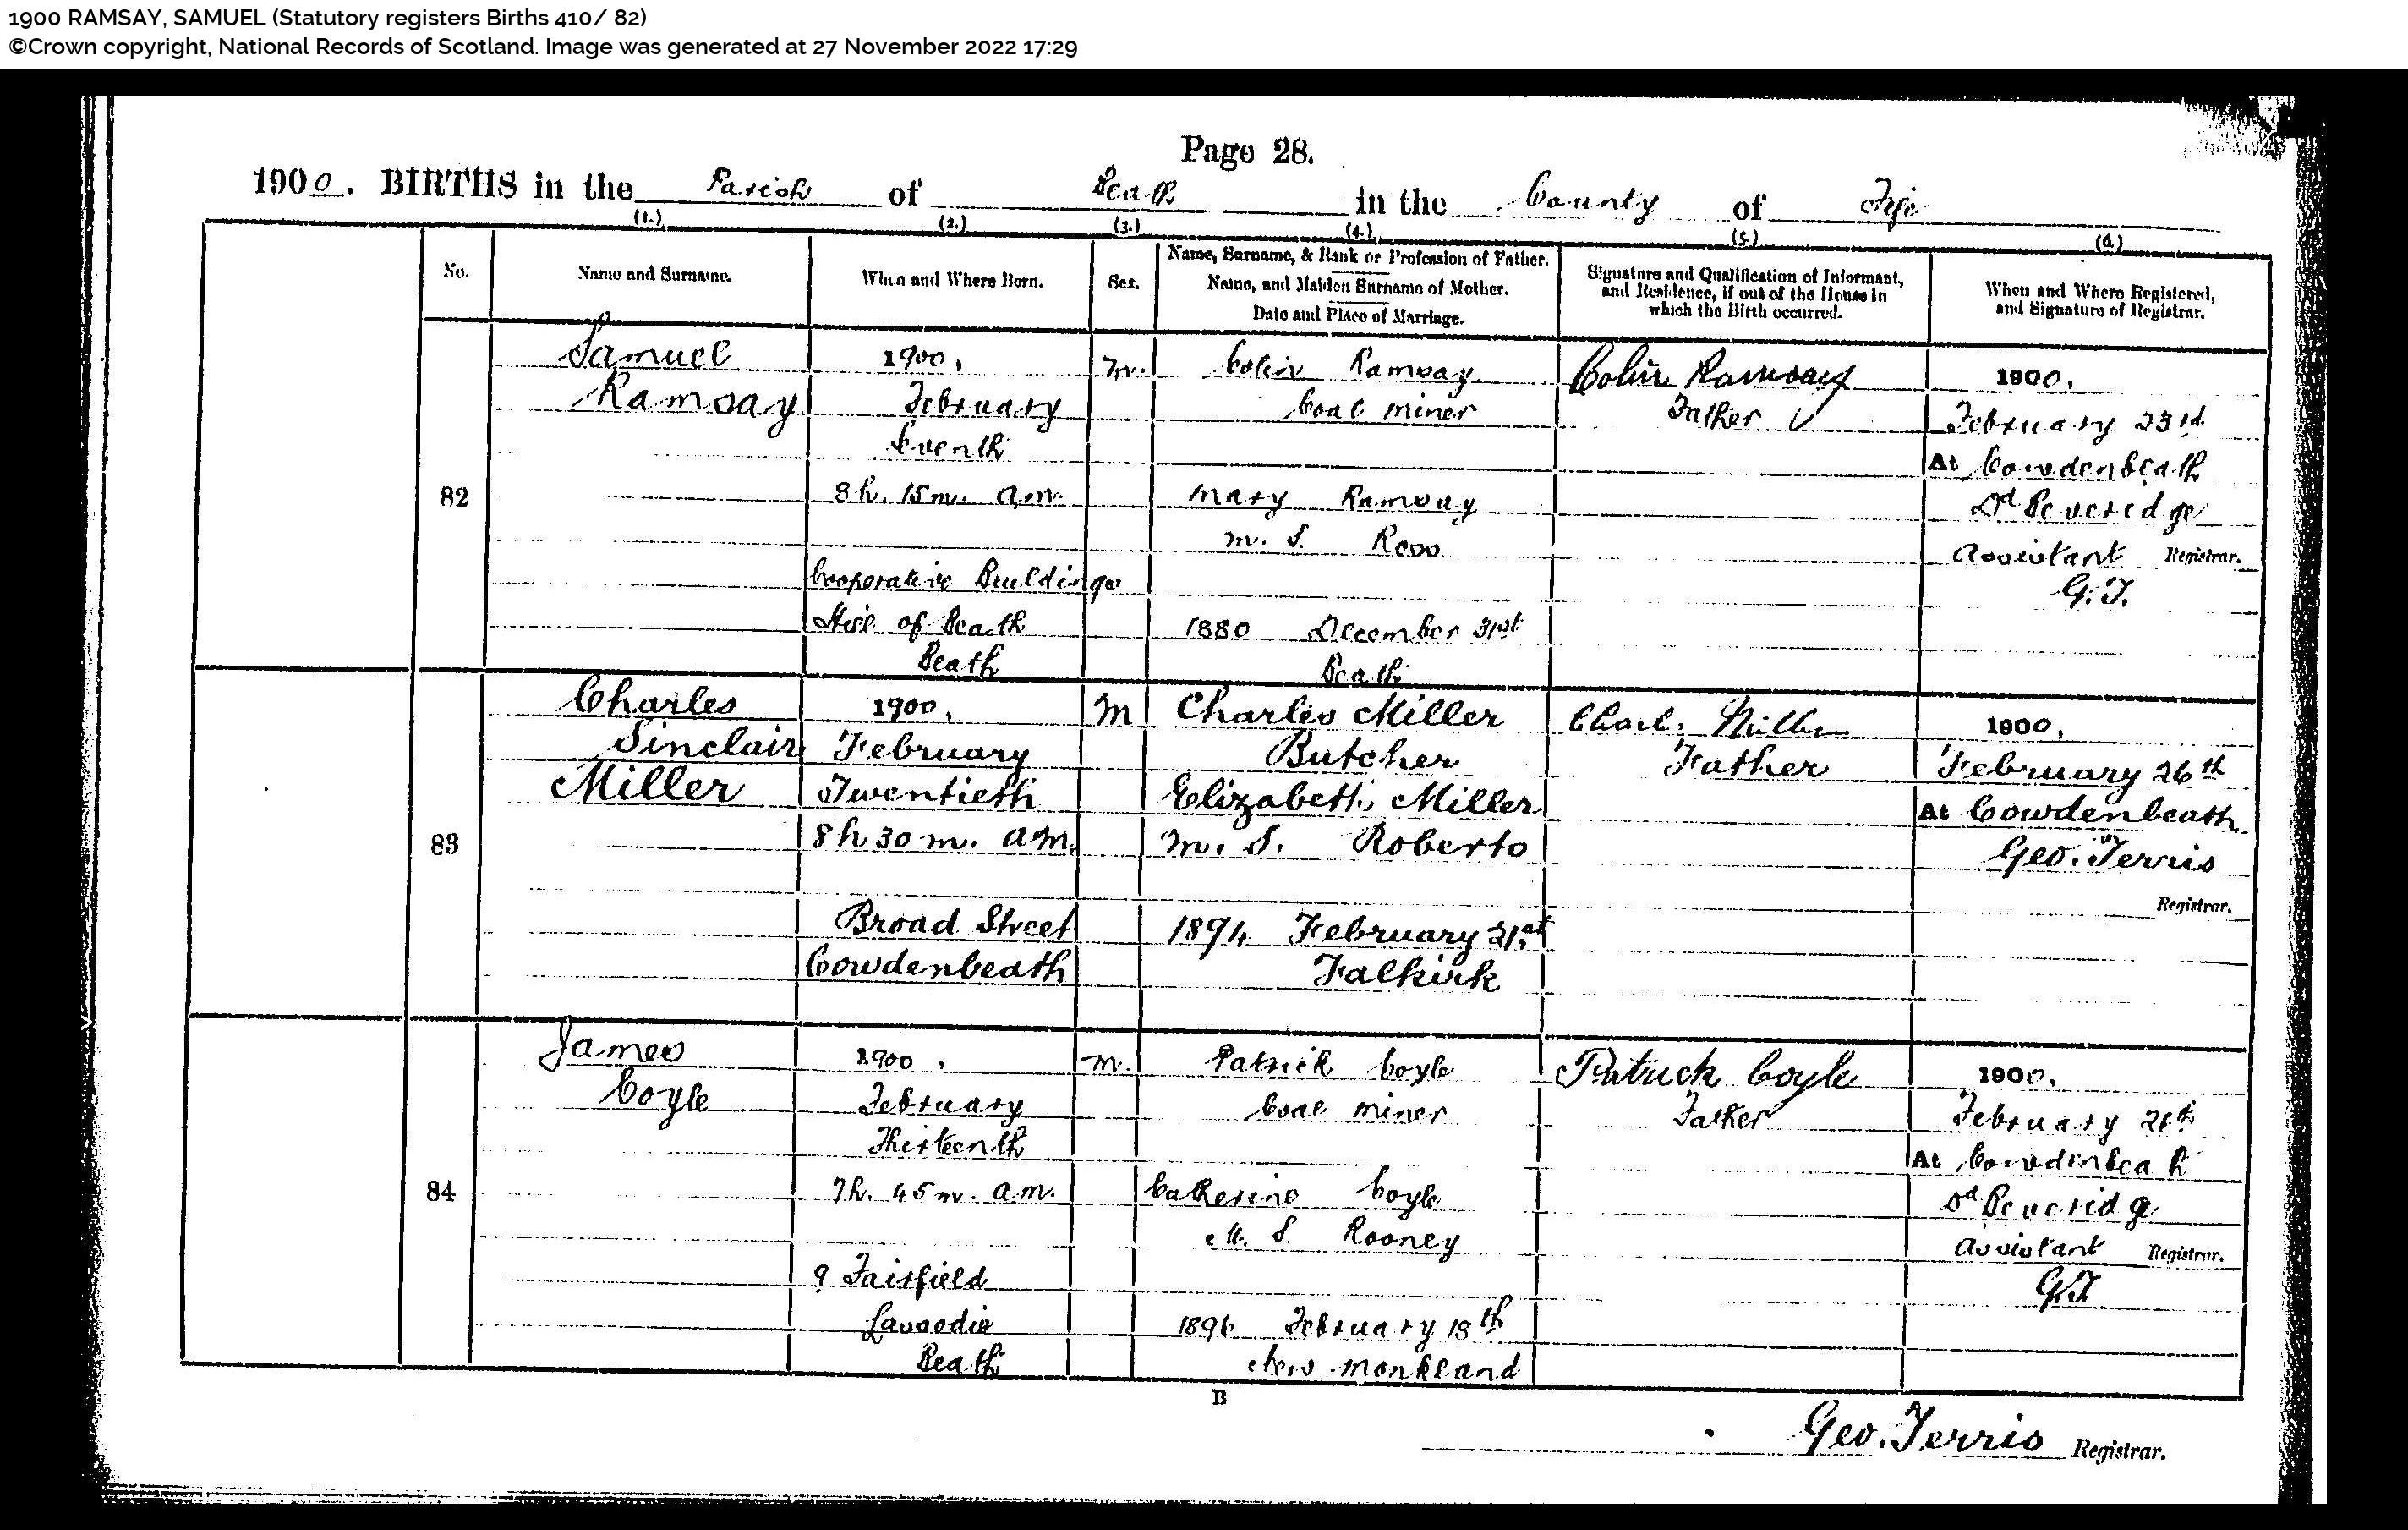 1900 RAMSAY, SAMUEL (Statutory registers Births 410/ 82)
©Crown copyright, National Records of Scotland. Image was generated at 27 November 2022 17:29
Page 28.
1900. BIRTHS in the Parish of Beath in the County of Fife
(1.) (2.) (3.) (4.) (5.) (6.)
No. Name and Surname. When and Where Born. Sex. Name, Surname, & Rank or Profession of Father.
Name, and Maiden Surname of Mother.
Date and Place of Marriage.
Signature and Qualification of Informant,
and Residence, if out of the House in
which the Birth occurred.
When and Where Registered,
and Signature of Registrar.
82
Samuel
Ramsay
1900,
February
Seventh
8h. 15m. a.m.
Cooperative Buildings
Hill of Beath
Beath
M.
Colin Ramsay
Coal miner
Mary Ramsay
m. S. Ross
1880 December 31st
Beath
Colin Ramsay
Father
1900,
February 23rd
At Cowdenbeath
Dd Beveridge
Assistant Registrar.
G.T.
83
Charles
Sinclair
Miller
1900,
February
Twentieth
8h 30m. a.m.
Broad Street
Cowdenbeath
M
Charles Miller
Butcher
Elizabeth Miller
m. S. Roberts
1894 February 21st
Falkirk
Charles Miller
Father
1900,
February 26th
At Cowdenbeath
Geo. Terris
Registrar.
84
James
Coyle
1900,
February
Thirteenth
7h. 45m. a.m.
9 Fairfield
Lassodie
Beath
M.
Patrick Coyle
Coal miner
Catherine Coyle
M. S. Rooney
1896 February 18th
New Monkland
Patrick Coyle
Father
1900,
February 26th
At Cowdenbeath
Dd Beveridge
Assistant Registrar.
G.T
B
Geo. Terris Registrar.